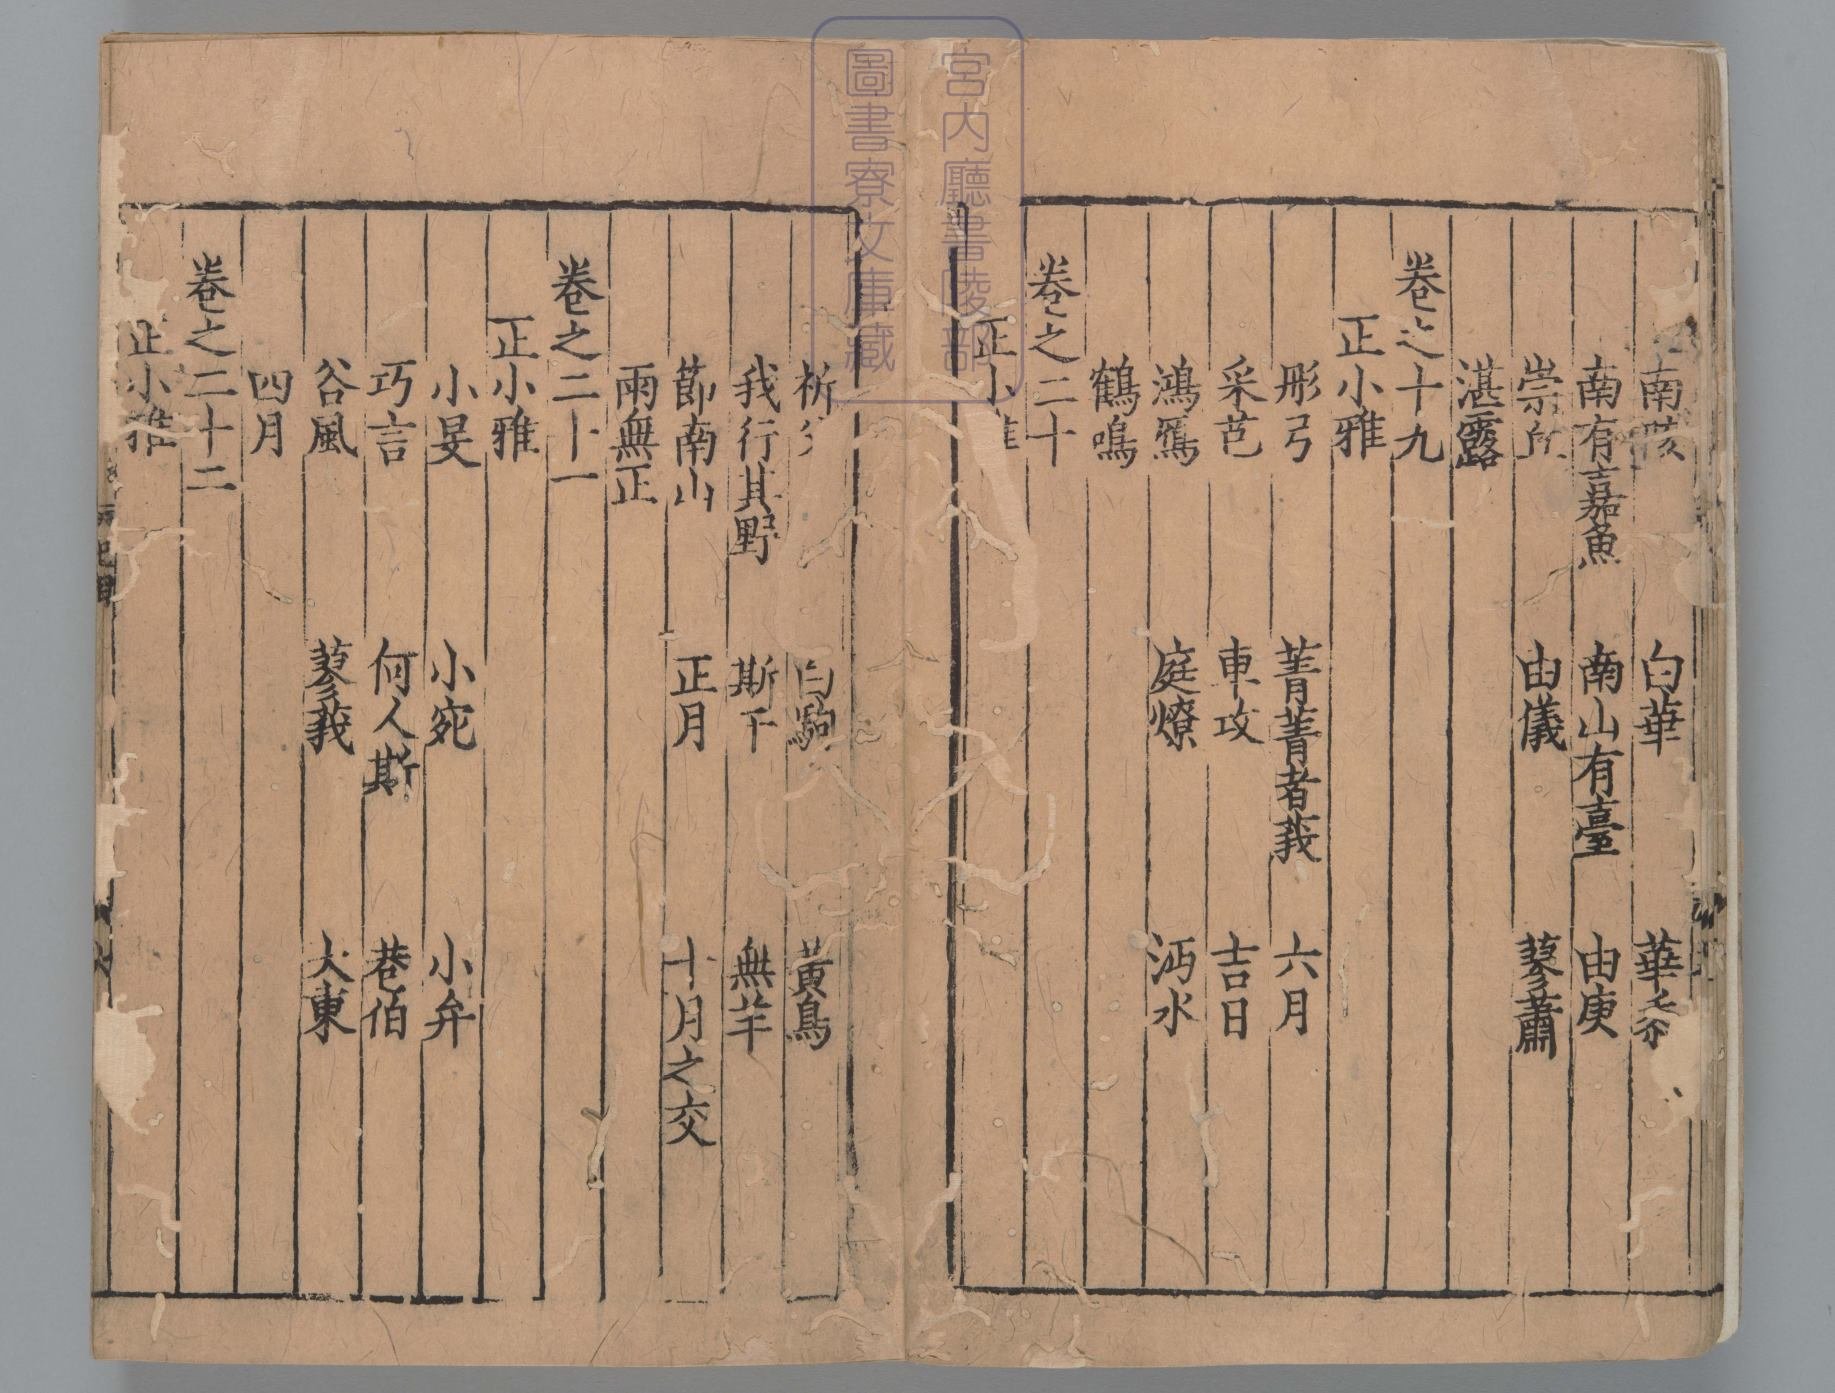 宮内廳書陵部
圖書寮文庫藏
南陔 白華 華黍
南有嘉魚 南山有臺 由庚
崇丘 由儀 蓼蕭
湛露
卷之十九
正小雅
彤弓 菁菁者莪 六月
采芑 車攻 吉日
鴻鴈 庭燎 沔水
鶴鳴
卷之二十
正小雅
祈父 白駒 黃鳥
我行其野 斯干 無羊
節南山 正月 十月之交
雨無正
卷之二十一
正小雅
小旻 小宛 小弁
巧言 何人斯 巷伯
谷風 蓼莪 大東
四月
卷之二十二
正小雅